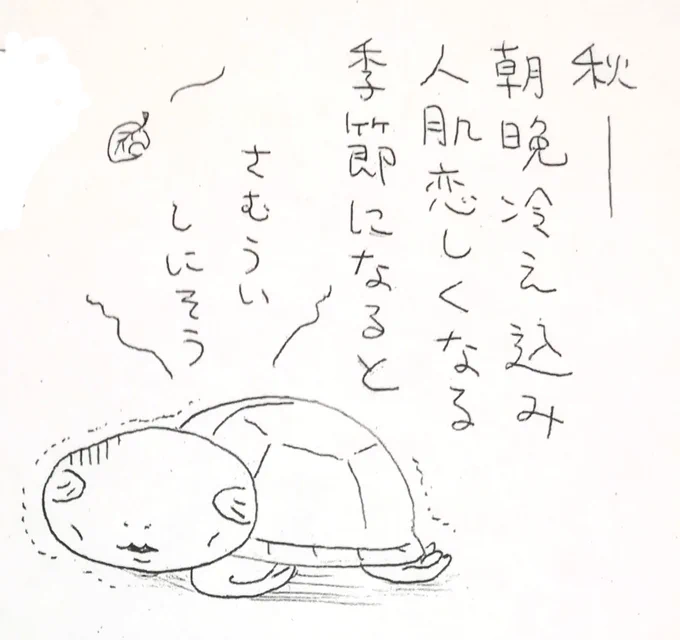 秋――
朝晩冷え込み
人肌恋しくなる
季節になると
さむうい
しにそう